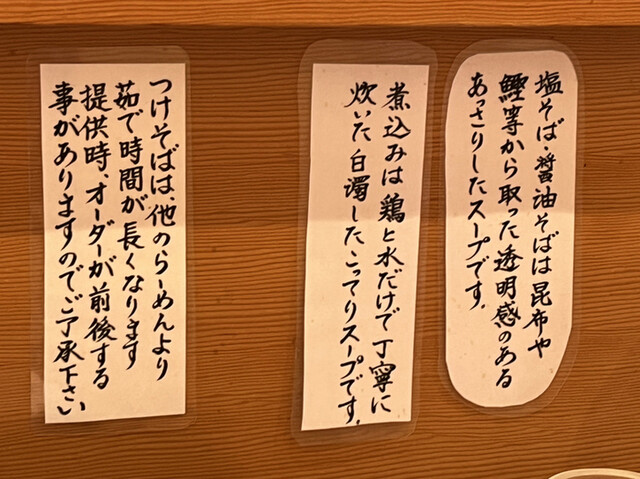 塩そば・醤油そばは昆布や
鰹等から取った透明感のある
あっさりしたスープです.
煮込みは鶏と水だけで丁寧に
炊いた白濁したこってりスープです.
つけそばは、他のらーめんより
茹で時間が長くなります
提供時、オーダーが前後する
事がありますのでご了承下さい